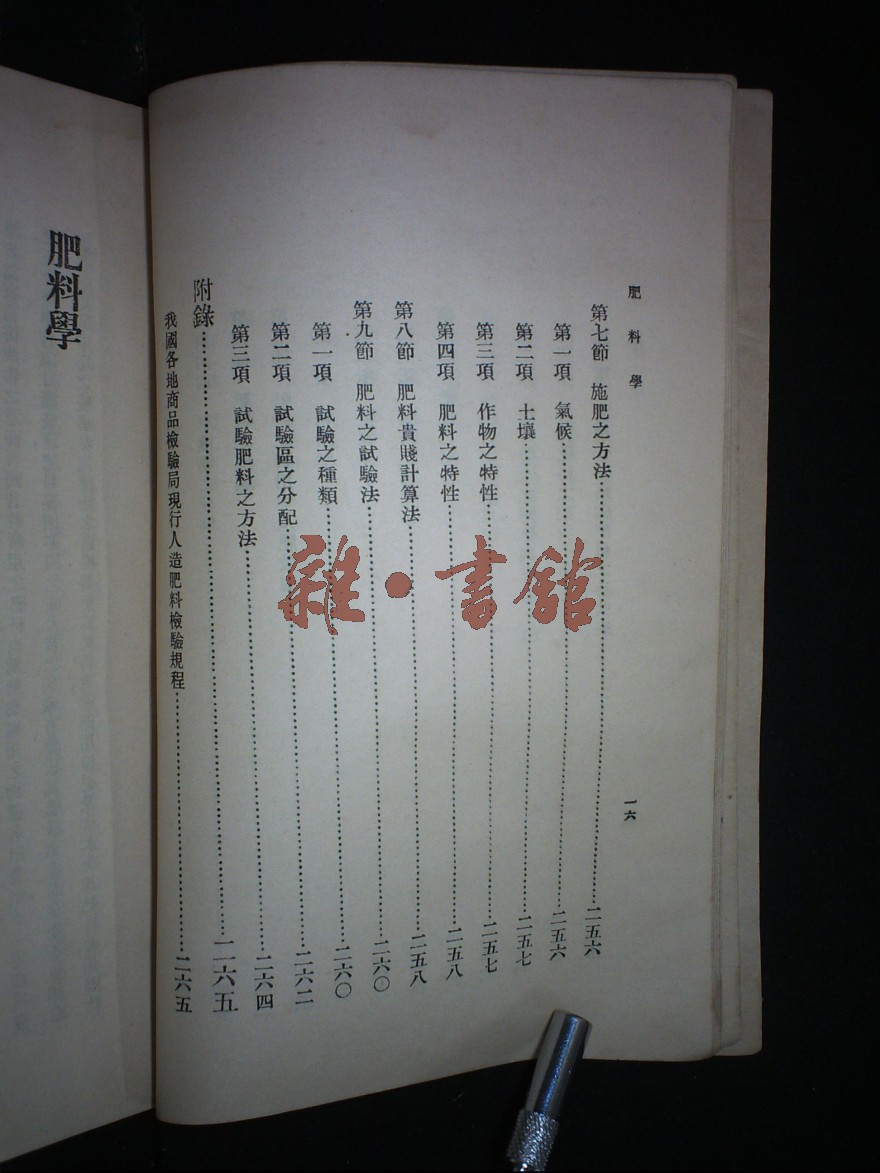 肥料學
一六
第七節 施肥之方法……二五六
第一項 氣候……二五六
第二項 土壤……二五七
第三項 作物之特性……二五七
第四項 肥料之特性……二五八
第八節 肥料貴賤計算法……二五八
第九節 肥料之試驗法……二六〇
第一項 試驗之種類……二六〇
第二項 試驗區之分配……二六二
第三項 試驗肥料之方法……二六四
附錄……二六五
我國各地商品檢驗局現行人造肥料檢驗規程……二六五
肥料學
雜·書館